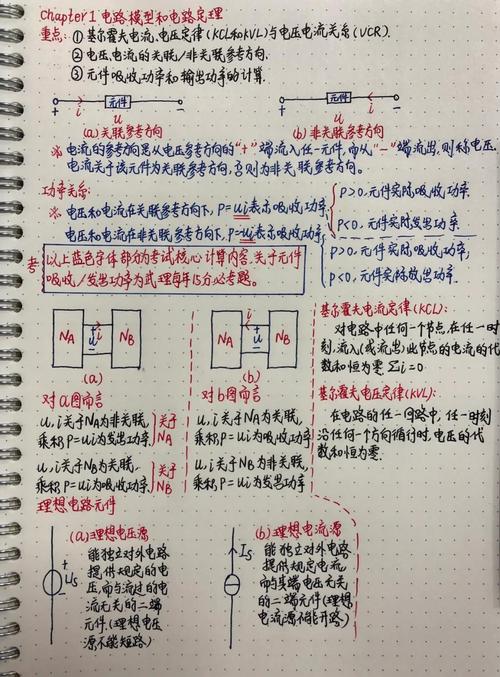 Chapter 1 电路模型和电路定理
重点: ① 基尔霍夫电流、电压定律(KCL和KVL)与电压电流关系(VCR).
② 电压、电流的关联/非关联参考方向.
③ 元件吸收功率和输出功率的计算.
+ i 元件 -
u
(a) 关联参考方向
+ 元件 i -
u
(b) 非关联参考方向
※ 电流的参考方向是从电压参考方向的"+"端流入任一元件,而从"-"端流出,则称电压、
电流关于该元件为关联参考方向,否则为非关联参考方向。
功率关系:
※ 电压和电流在关联参考方向下, P=ui表示吸收功率
P>0,元件实际吸收功率
P<0,元件实际发出功率
电压和电流在非关联参考方向下, P=ui表示
P>0,元件实际
P<0,元件实际
考
以上蓝色字体部分为考试核心计算内容.关于元件
吸收/发出功率为武理每年15分必考题。
NA i + u - NB
(a)
NA i + u - NB
(b)
对a图而言
u,i关于NA为非关联,
乘积P=ui为发出功率
关于
NA
u,i关于NB为关联,
乘积P=ui为吸收功率
关于
NB
对b图而言
u,i关于NA为关联,
乘积P=ui为吸收功率
u,i关于NB为非关联,
乘积P=ui为发出功率
基尔霍夫电流定律(KCL):
对电路中任何一个节点,在任一时
刻,流入(或流出)此节点的电流的代
数和恒为零 Σi=0
基尔霍夫电压定律(KVL):
在电路的任一回路中,任一时刻
沿任何一个方向循行时,电压的代
数和恒为零.
理想电路元件
(a)理想电压源
+
Us
-
能独立对外电路
提供规定的电
压,而与流过的电
流无关的二端
元件.(理想电压
源不能短路)
(b) 理想电流源
Is
能独立对外电路
提供规定电流,
而与其端电压无关
的二端元件(理想
电流源不能开路)